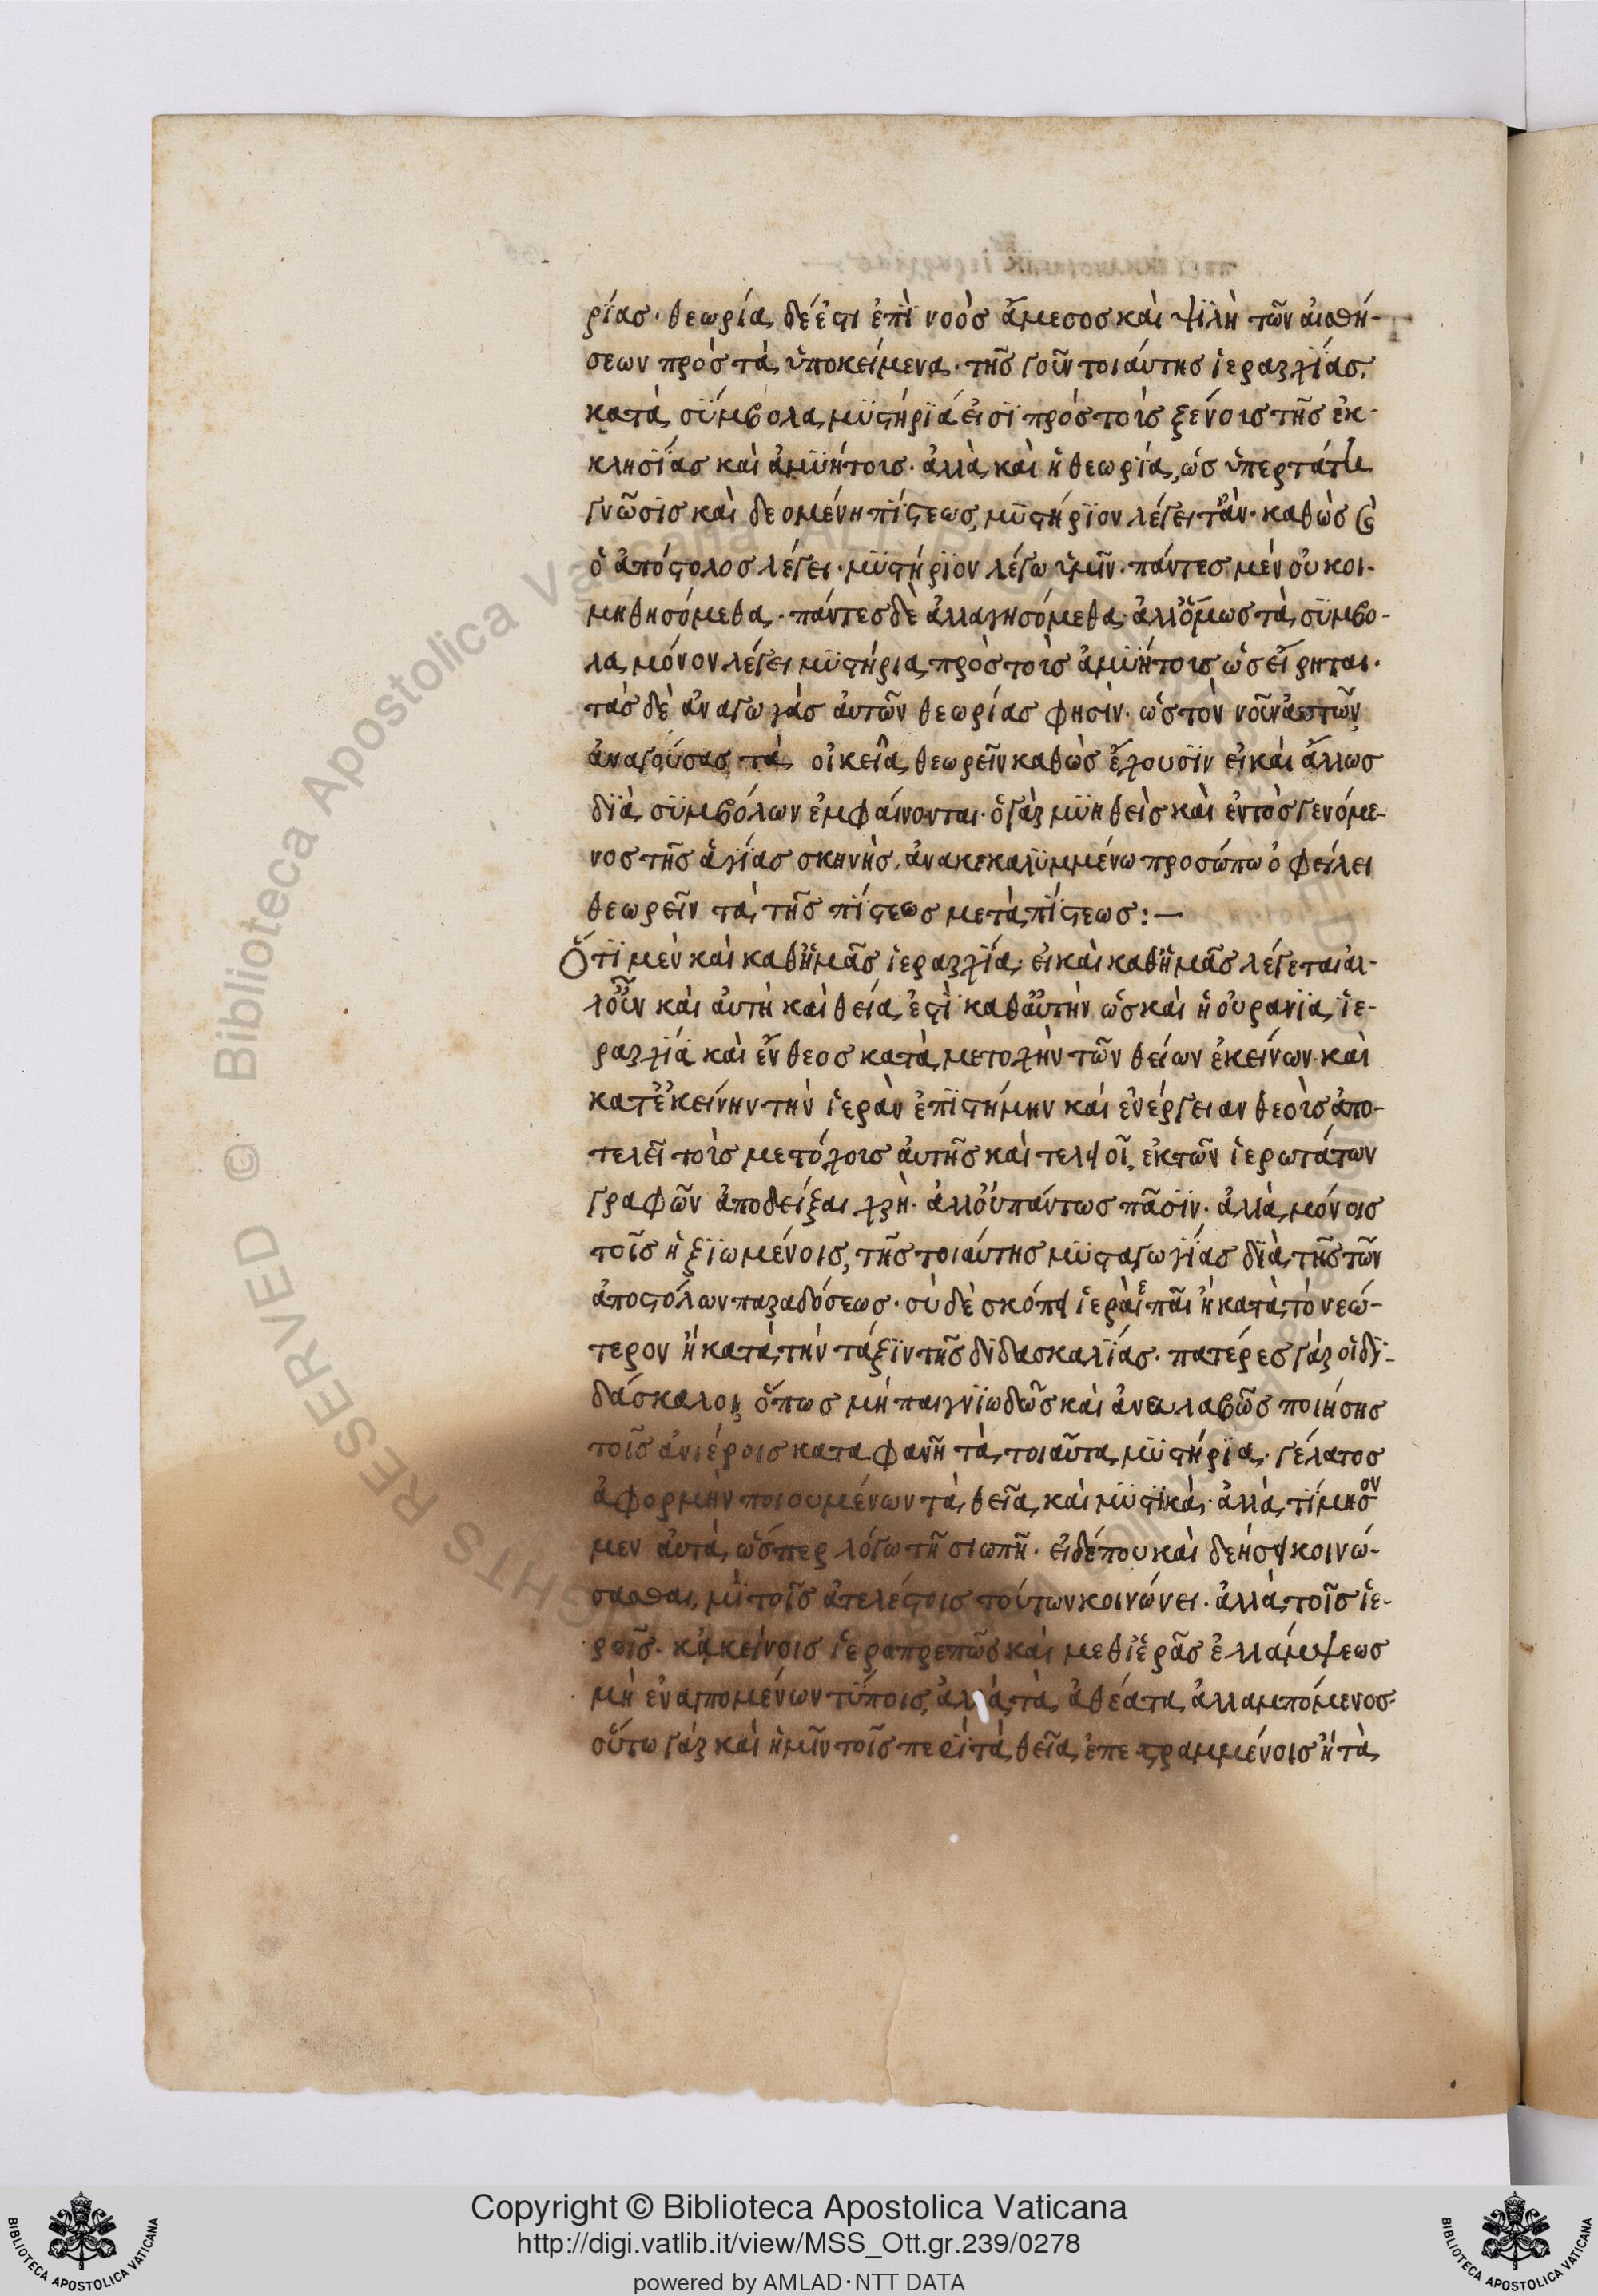 ρίας· θεωρία δέ ἐστι ἐπὶ νοὸς ἄμεσος καὶ ψϊλὴ τῶν αἰσθή-
σεων πρὸς τὰ ὑποκείμενα· τῆς γοῦν τοιαύτης ἱεραρχίας
κατὰ σϋμβολα μϋστήρϊά εἰσϊ πρὸς τοῖς ξένοις τῆς ἐκ-
κλησίας καὶ ἀμϋήτοις· ἀλλὰ καὶ ἡ θεωρία, ὡς ὑπερτάτη
γνῶσϊς καὶ δεομένη πίστεως, μϋστήρϊον λέγειτἂν· καθὼς καὶ
ὁ ἀπόστολος λέγει· μϋστήρϊον λέγω ὑμῖν· πάντες μὲν οὐ κοι-
μηθησόμεθα· πάντες δὲ ἀλλαγησόμεθα· ἀλλ᾽ὅμως τὰ σϋμβο-
λα μόνον λέγει μϋστήρια πρὸς τοῖς ἀμϋήτοις ὡς εἴρηται·
τὰς δὲ ἀναγωγὰς αὐτῶν θεωρίας φησὶν· ὡς τὸν νοῦν αὐτῶν
ἀναγούσας τὰ οἰκεῖα θεωρεῖν καθὼς ἔχουσϊν εἰ καὶ ἄλλως
δϊὰ σϋμβόλων ἐμφαίνονται· ὁ γὰρ μϋηθεὶς καὶ ἐντὸς γενόμε-
νος τῆς ἁγίας σκηνῆς, ἀνακεκαλϋμμένω προσώπω ὀφείλει
θεωρεῖν τὰ τῆς πίστεως μετὰ πίστεως :—
Ὅτϊ μὲν καὶ καθ᾽ἡμᾶς ἱεραρχϊα· εἰ καὶ καθ᾽ἡμᾶς λέγεται ἀλ-
λ᾽οὖν καὶ αὐτὴ καὶ θεία ἐστὶ καθ᾽αὑτὴν ὡς καὶ ἡ οὐρανϊα ἱε-
ραρχϊα καὶ ἔνθεος κατὰ μετοχὴν τῶν θείων ἐκείνων· καὶ
κατ᾽ἐκείνην τὴν ἱερὰν ἐπϊστήμην καὶ ἐνέργειαν θεοὶς ἀπο-
τελεῖ τοῖς μετόχοις αὐτῆς καὶ τελειοῖ, ἐκ τῶν ἱερωτάτων
γραφῶν ἀποδεῖξαι χρὴ· ἀλλ᾽οὐ πάντως πᾶσϊν· ἀλλὰ μόνοις
τοῖς ἠξϊωμένοις, τῆς τοιαύτης μϋσταγωγίας δϊὰ τῆς τῶν
ἀποστόλων παραδόσεως· σὺ δὲ σκόπει ἱερὲ παῖ ἢ κατὰ τὸ νεώ-
τερον ἢ κατὰ τὴν τάξϊν τῆς δϊδασκαλϊας· πατέρες γὰρ οἱ δϊ-
δάσκαλοι, ὅπως μὴ παιγνϊωδῶς καὶ ἀνευλαβῶς ποιήσης
τοῖς ἀνιέροις καταφανῆ τὰ τοιαῦτα μϋστήρϊα· γέλωτος
ἀφορμὴν ποιουμένων τὰ θεῖα καὶ μϋστϊκὰ· ἀλλὰ τίμησον
μεν αὐτὰ ὥσπερ λόγω τῆ σιωπῆ· εἰ δέ που καὶ δεήσει κοινώ-
σασθαι, μὴ τοῖς ἀτελέστοις τούτων κοινώνει· ἀλλὰ τοῖς ἱε-
ροῖς· κἀκείνοις ἱεροπρεπῶς καὶ μεθ᾽ἱερᾶς ἐλλάμψεως
μὴ ἐναπομένων τύποις, ἀλλὰ τὰ ἀθέατα ἀλλαμπόμενος·
οὕτω γὰρ καὶ ἡμῖν τοῖς περὶ τὰ θεῖα ἐπεστραμμένοις ἢ τὰ
Copyright © Biblioteca Apostolica Vaticana
http://digi.vatlib.it/view/MSS_Ott.gr.239/0278
powered by AMLAD·NTT DATA